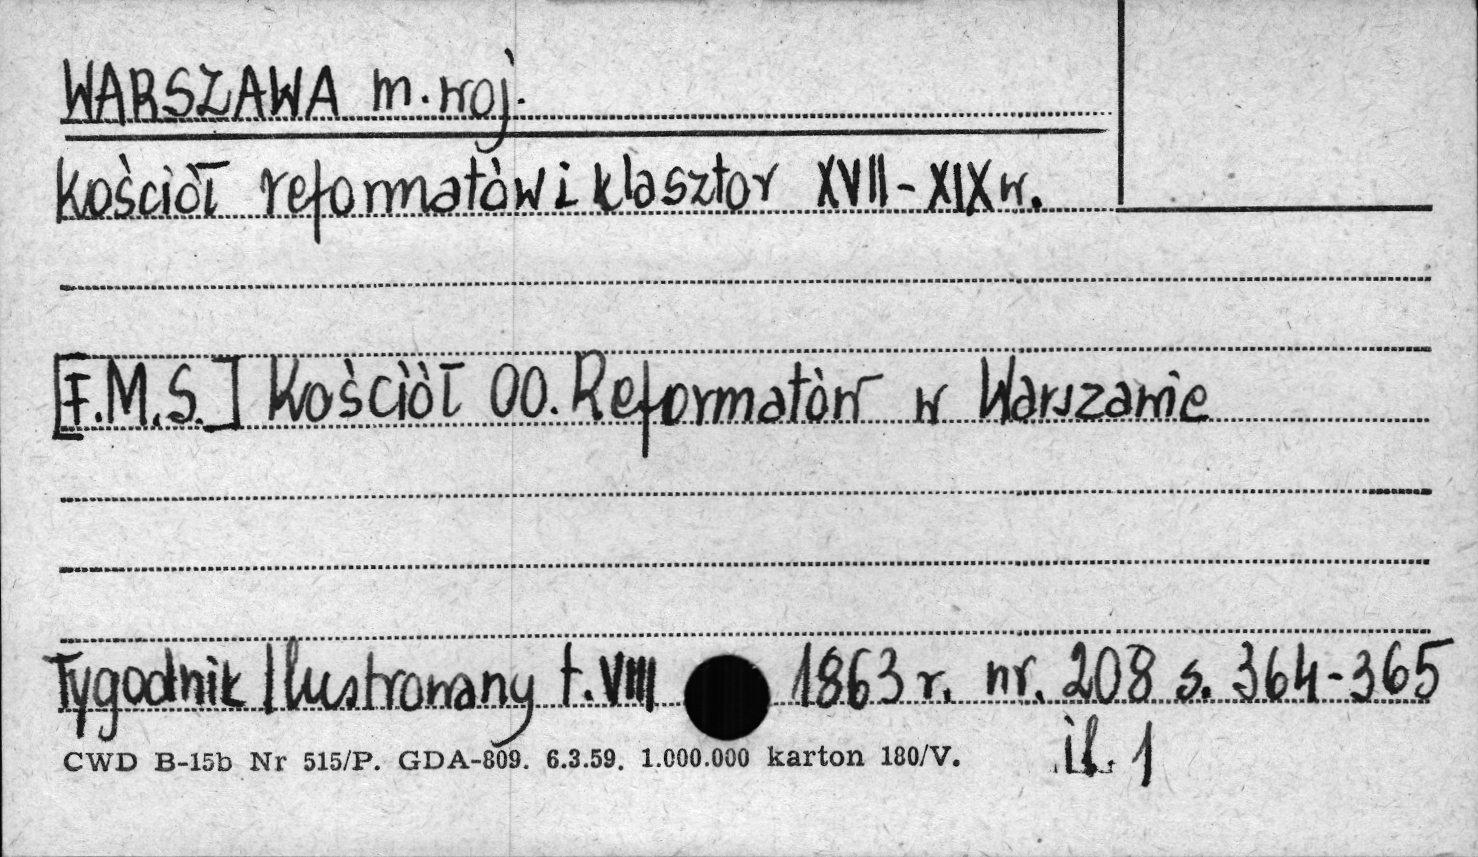 WARSZAWA m. woj.
Kościół reformatów i klasztor XVII-XIX w.
[F.M.S.] Kościół OO. Reformatów w Warszawie
Tygodnik Ilustrowany t. VIII 1863 r. nr. 208 s. 364-365
il. 1
CWD B-15b Nr 515/P. GDA-809. 6.3.59. 1.000.000 karton 180/V.